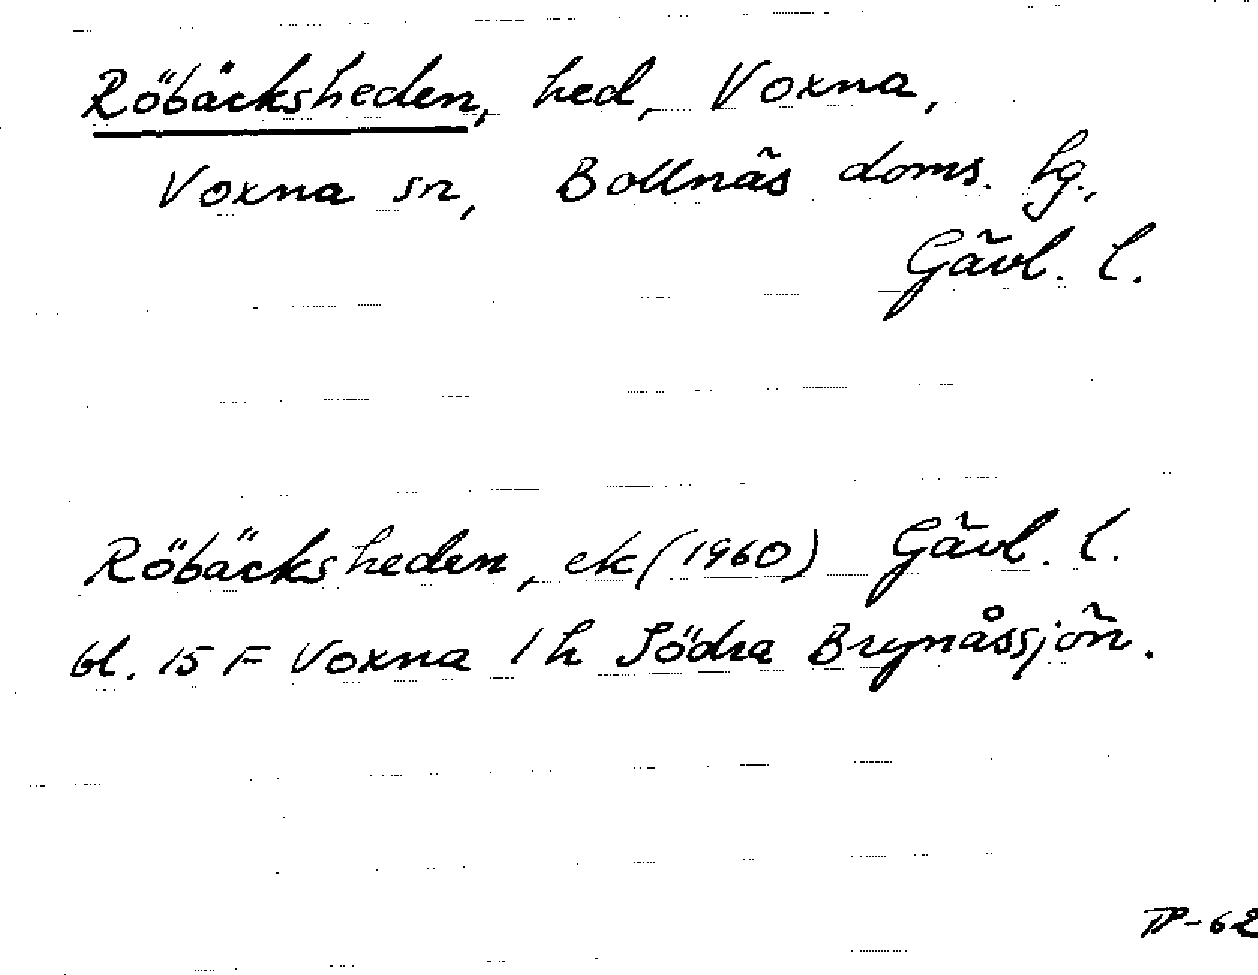 Röbäcksheden, hed, Voxna,
Voxna sn, Bollnäs doms. hg.,
Gävl. l.
Röbäcksheden, ek (1960) Gävl. l.
bl. 15 F Voxna 1 h Södra Brynåssjön.
TP-62